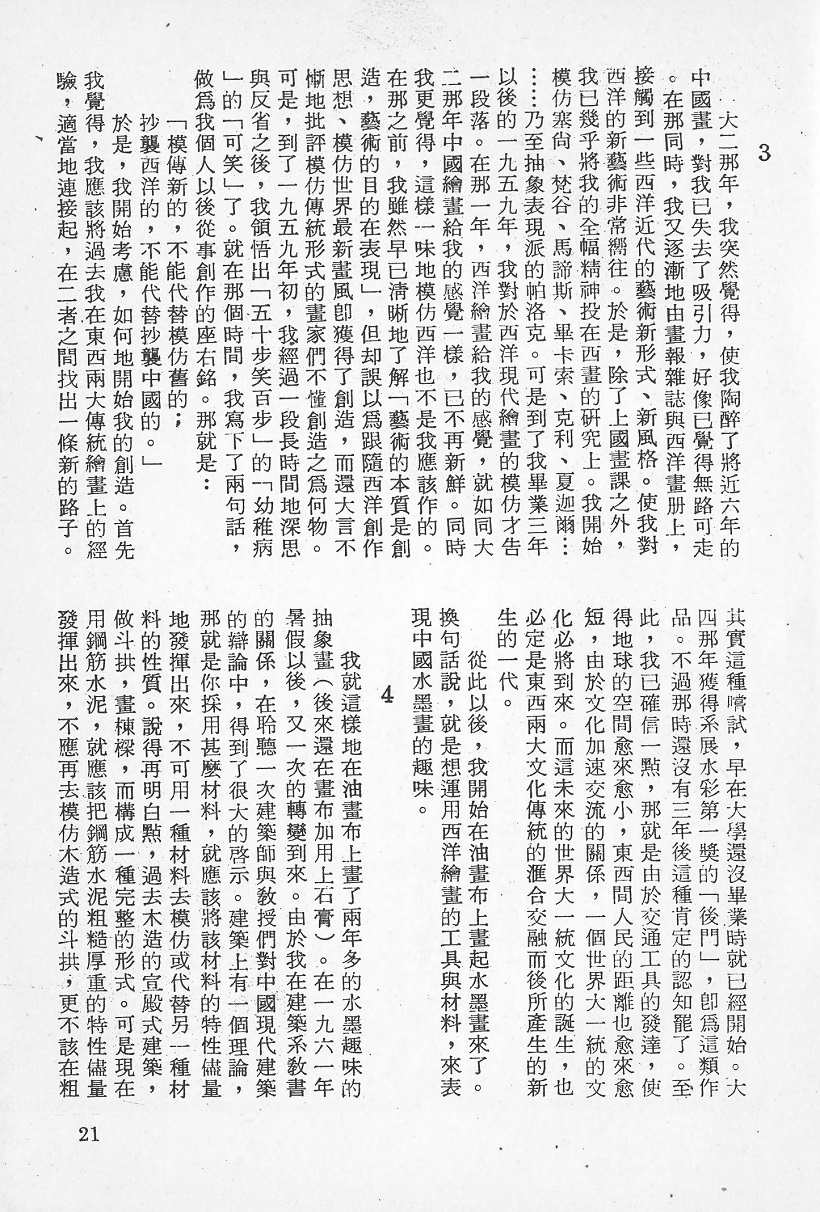 3
大二那年，我突然覺得，使我陶醉了將近六年的
中國畫，對我已失去了吸引力，好像已覺得無路可走
。在那同時，我又逐漸地由畫報雜誌與西洋畫册上，
接觸到一些西洋近代的藝術新形式、新風格。使我對
西洋的新藝術非常嚮往。於是，除了上國畫課之外，
我已幾乎將我的全幅精神投在西畫的研究上。我開始
模仿塞尙、梵谷、馬諦斯、畢卡索、克利、夏迦爾…
……乃至抽象表現派的帕洛克。可是到了我畢業三年
以後的一九五九年，我對於西洋現代繪畫的模仿才告
一段落。在那一年，西洋繪畫給我的感覺，就如同大
二那年中國繪畫給我的感覺一樣，已不再新鮮。同時
我更覺得，這樣一味地模仿西洋也不是我應該作的。
在那之前，我雖然早已清晰地了解「藝術的本質是創
造，藝術的目的在表現」，但却誤以爲跟隨西洋創作
思想、模仿世界最新畫風卽獲得了創造，而還大言不
慚地批評模仿傳統形式的畫家們不懂創造之爲何物。
可是，到了一九五九年初，我經過一段長時間地深思
與反省之後，我領悟出「五十步笑百步」的「幼稚病
」的「可笑」了。就在那個時間，我寫下了兩句話，
做爲我個人以後從事創作的座右銘。那就是：
「模傳新的，不能代替模仿舊的；
抄襲西洋的，不能代替抄襲中國的。」
於是，我開始考慮，如何地開始我的創造。首先
我覺得，我應該將過去我在東西兩大傳統繪畫上的經
驗，適當地連接起，在二者之間找出一條新的路子。
其實這種嚐試，早在大學還沒畢業時就已經開始。大
四那年獲得系展水彩第一獎的「後門」，卽爲這類作
品。不過那時還沒有三年後這種肯定的認知罷了。至
此，我已確信一點，那就是由於交通工具的發達，使
得地球的空間愈來愈小，東西間人民的距離也愈來愈
短，由於文化加速交流的關係，一個世界大一統的文
化必將到來。而這未來的世界大一統文化的誕生，也
必定是東西兩大文化傳統的滙合交融而後所產生的新
生的一代。
從此以後，我開始在油畫布上畫起水墨畫來了。
換句話說，就是想運用西洋繪畫的工具與材料，來表
現中國水墨畫的趣味。
4
我就這樣地在油畫布上畫了兩年多的水墨趣味的
抽象畫（後來還在畫布加用上石膏）。在一九六一年
暑假以後，又一次的轉變到來。由於我在建築系敎書
的關係，在聆聽一次建築師與敎授們對中國現代建築
的辯論中，得到了很大的啓示。建築上有一個理論，
那就是你採用甚麼材料，就應該將該材料的特性儘量
地發揮出來，不可用一種材料去模仿或代替另一種材
料的性質。說得再明白點，過去木造的宮殿式建築，
做斗拱，畫棟樑，而構成一種完整的形式。可是現在
用鋼筋水泥，就應該把鋼筋水泥粗糙厚重的特性儘量
發揮出來，不應再去模仿木造式的斗拱，更不該在粗
21